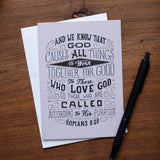 AND WE KNOW THAT
GOD
CAUSES ALL THINGS
TO WORK
TOGETHER FOR GOOD
TO THOSE
WHO LOVE GOD
TO THOSE WHO ARE
CALLED
ACCORDING TO HIS PURPOSE
ROMANS 8:28